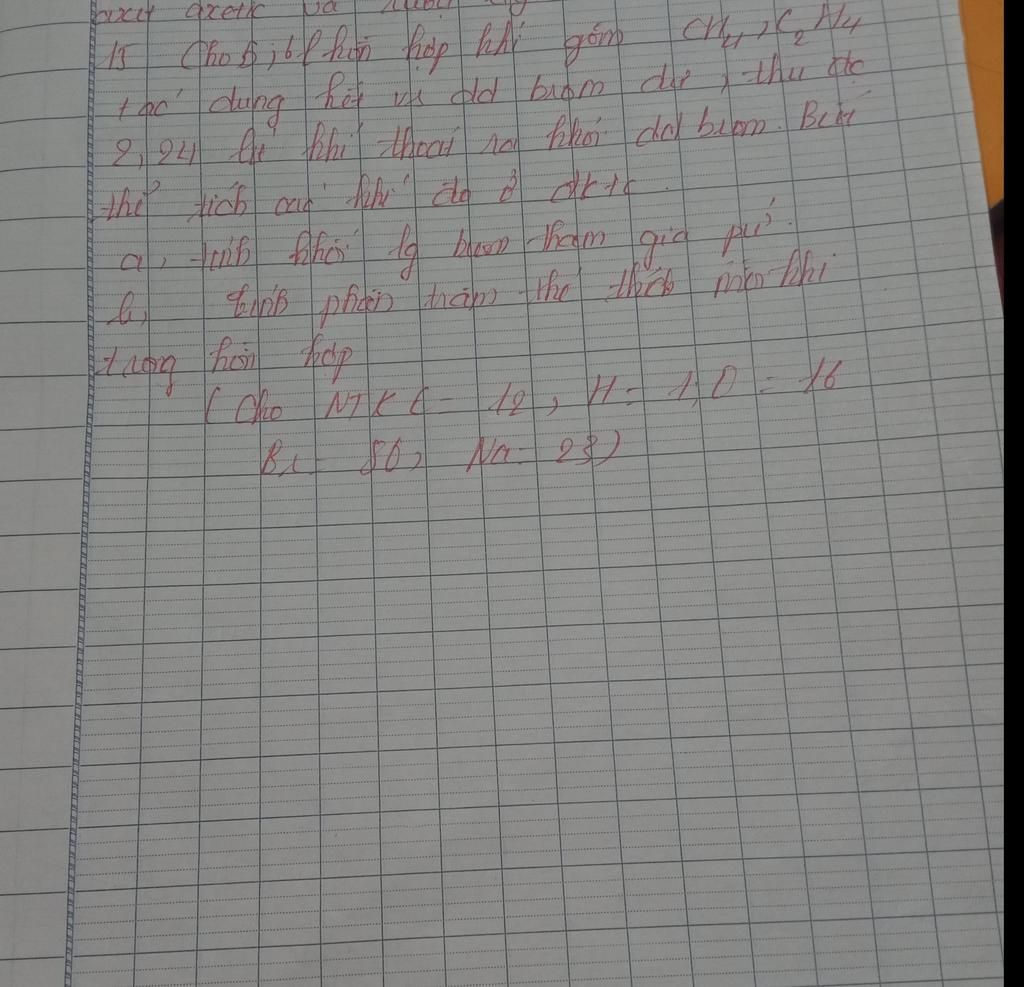 axit axetic và
15 Cho 5,6l hỗn hợp khí gồm CH4, C2H4
tác dụng hết vs dd brom dư, thu đc
2,24 lít khí thoát ra khỏi dd brom. Biết
thể tích các khí đo ở đktc
a, tính khối lg brom tham gia pứ.
b, tính phần trăm thể tích mỗi khí
trong hỗn hợp
(Cho NTK C = 12, H = 1, O = 16
Br = 80, Na = 23)